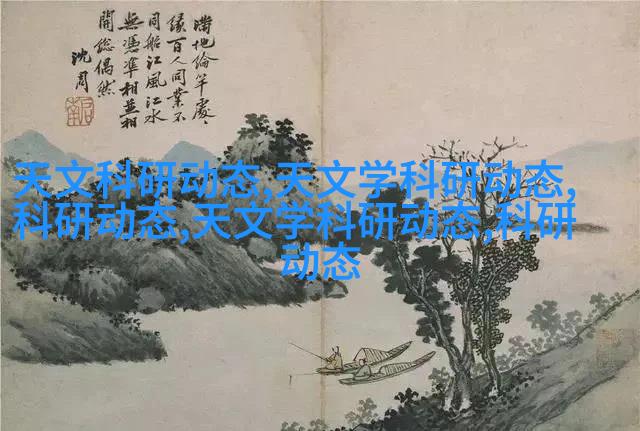 滿地綸竿處、
緣百人同業不
同船江風江水
無憑準相並相
開總偶然
沈周
天文科研动态,天文学科研动态,
科研动态,天文学科研动态,科研
动态